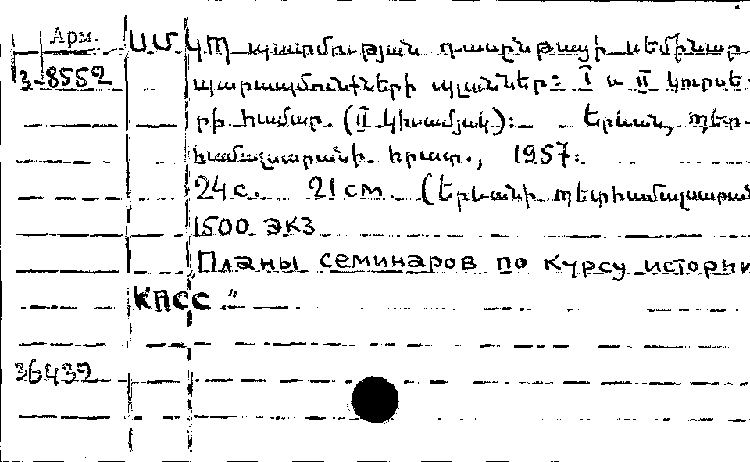 Арм.
3-8552
ՍՄԿՊ պատմության դասընթացի սեմինար
պարապմունքների պլաններ: I և II կուրսե-
րի համար. (II կիսամյակ): Երևան, պետ-
համալսարանի հրատ., 1957:
24 с. 21 см. (Երևանի պետհամալսարան
1500 экз
„Планы семинаров по курсу истории
КПСС"
36439